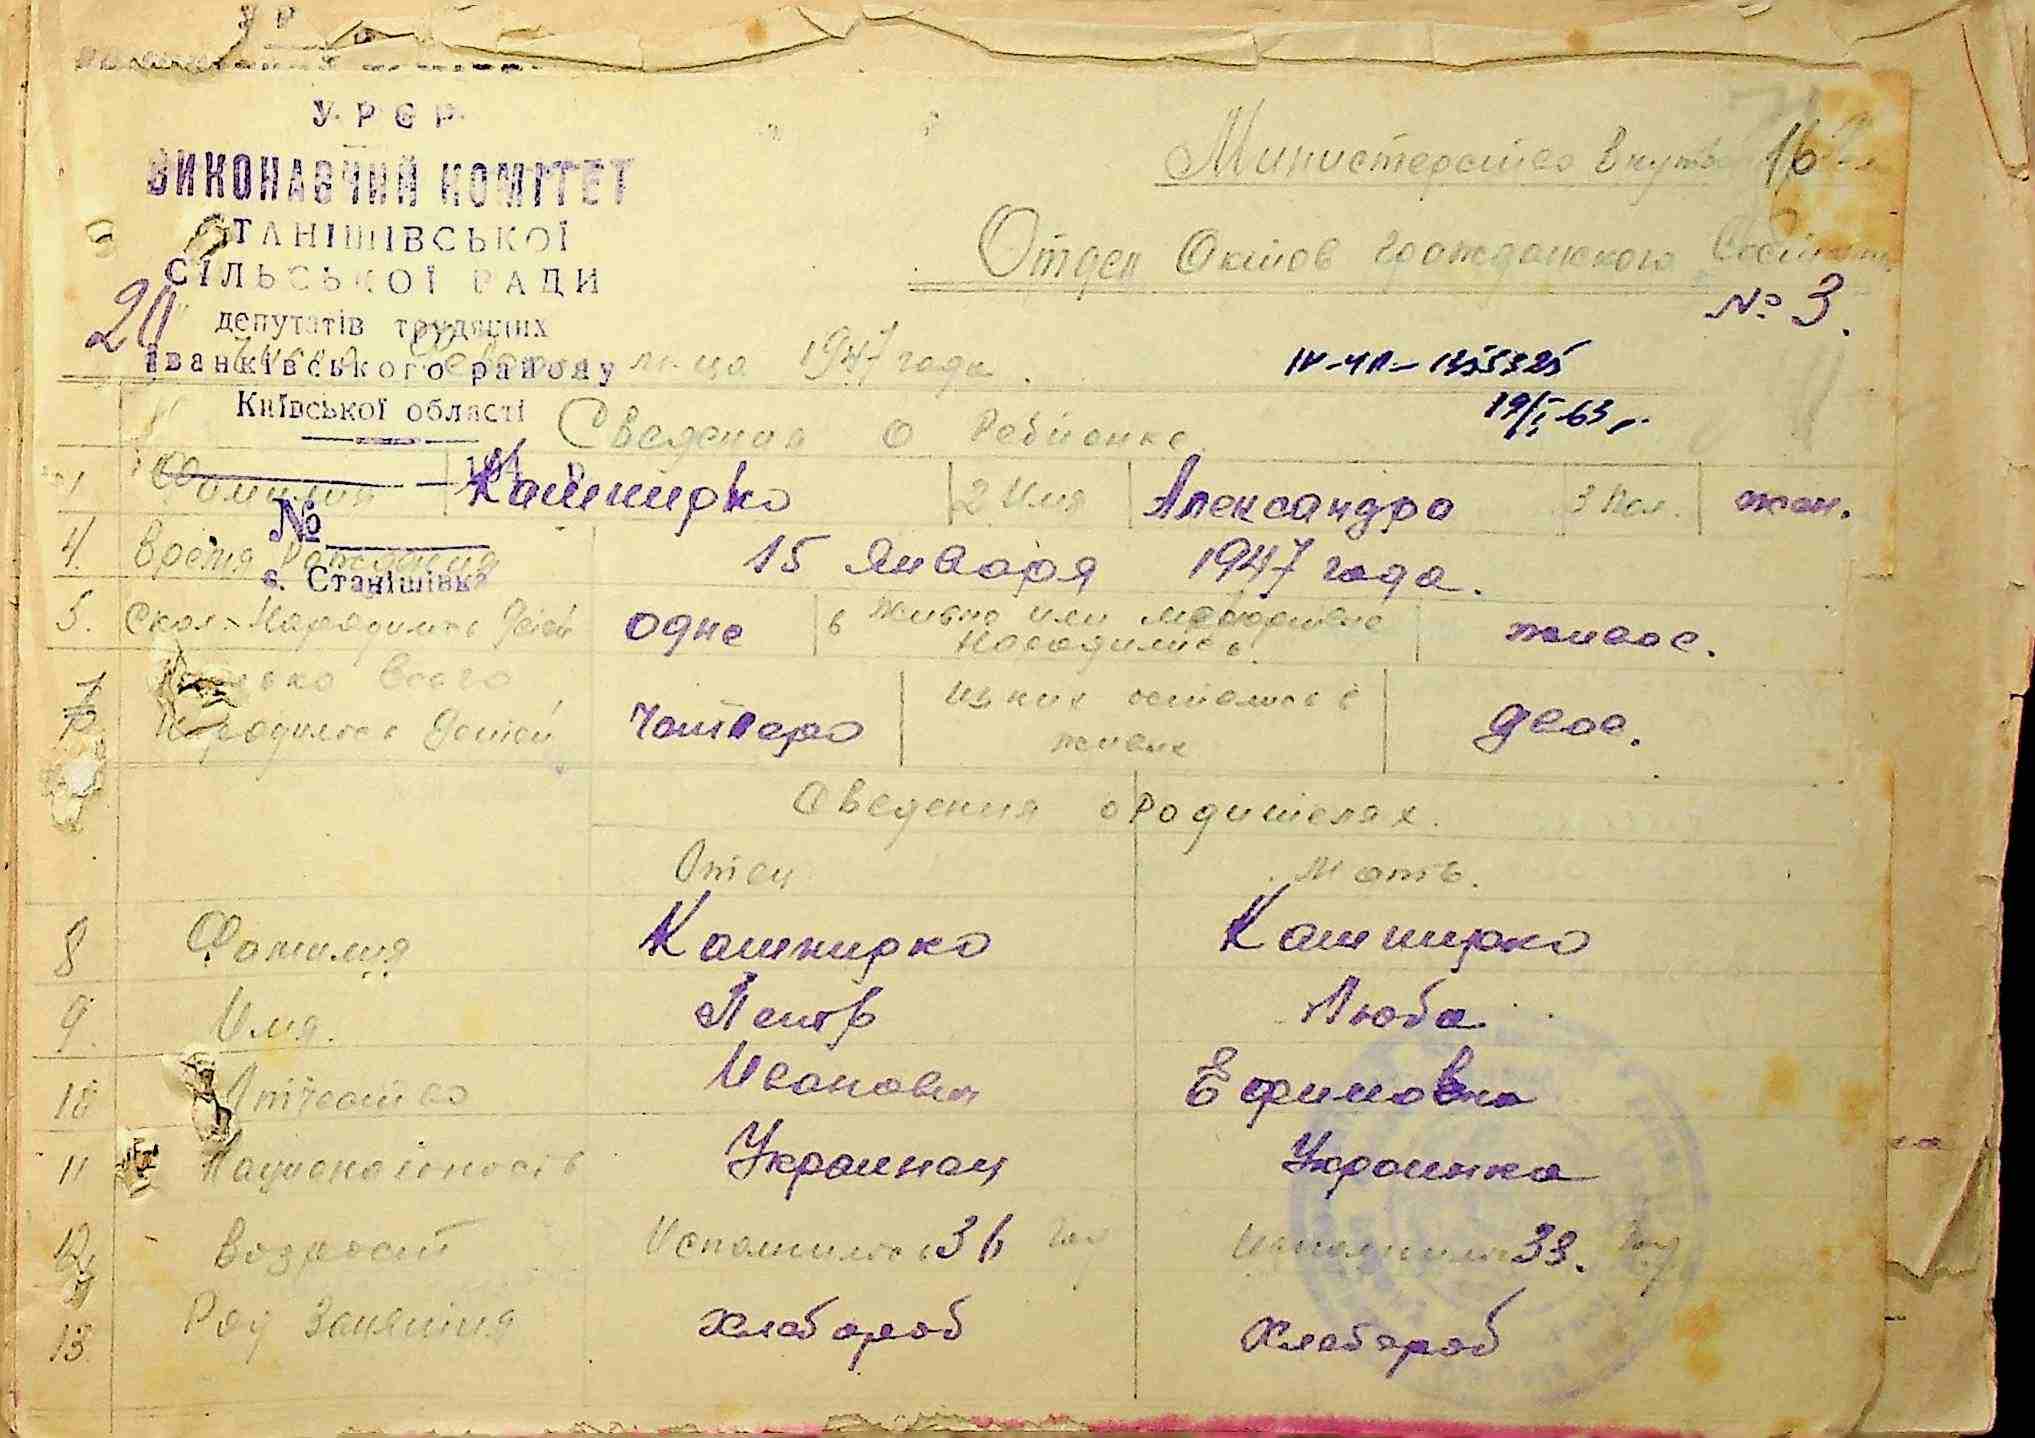 У.Р.С.Р.
ВИКОНАВЧИЙ КОМІТЕТ
СТАНІШІВСЬКОЇ
СІЛЬСЬКОЇ РАДИ
депутатів трудящих
Іванківського району
Київської області
№
с. Станішівка
Министерство Внутр 16
Отдел Актов гражданского Состояния
№ 3.
20 м-ца 1947 года
IV-ЧП-1355325
19/I-63 г.
Сведения о Ребйонке
1. Фамилия Кашпирко 2 Имя Александра 3 Пол. жен.
4. Время Рождения 15 января 1947 года.
5. Скол. Народилось Детей одне 6 Живые или мертвые Народились. живое.
7 Сколько Всего Народилось Детей четверо Из них осталось в живых двое.
Сведения о Родителях.
Отец Мать.
8 Фамилия Кашпирко Кашпирко
9. Имя. Петр Люба
10 Отчество Иванович Ефимовна
11 Национальность Украинец Украинка
12. Возраст Исполнилось 36 Год Исполнилось 33. Год
13. Род Занятия хлебороб Хлебороб